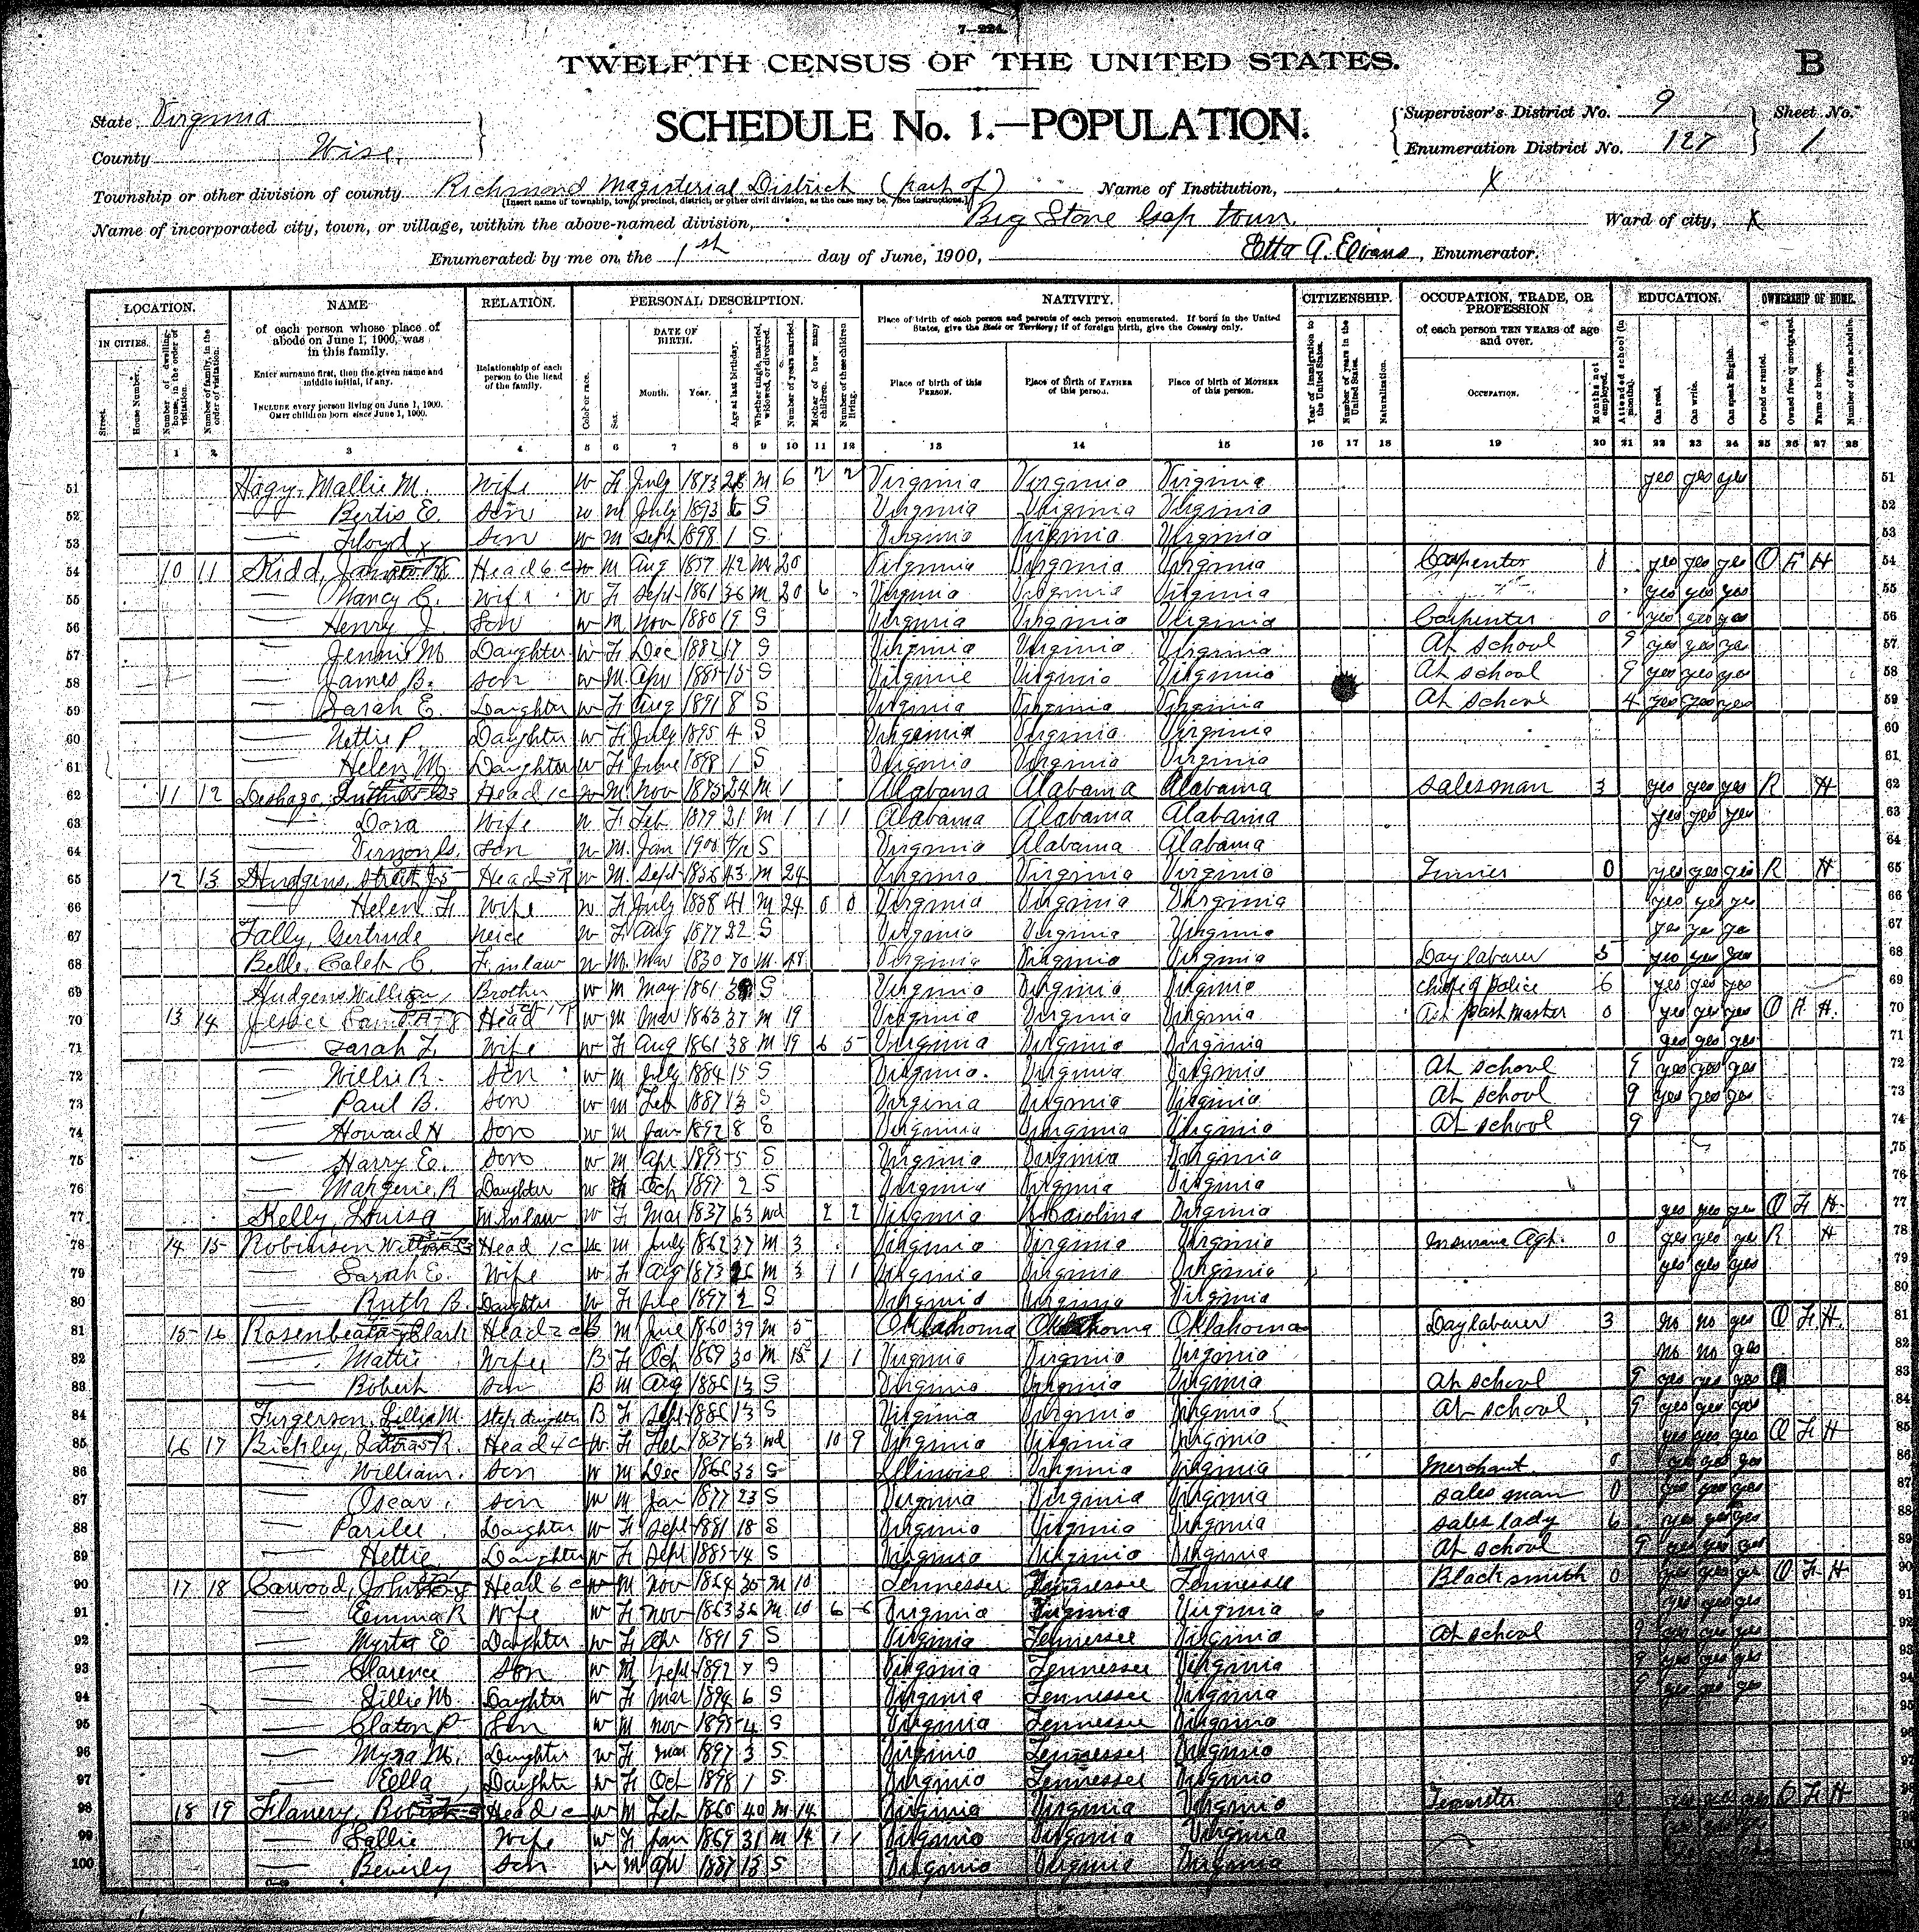 7—224.
TWELFTH CENSUS OF THE UNITED STATES.
B
State Virginia
County Wise.
SCHEDULE No. 1.—POPULATION.
Supervisor's District No. 9
Enumeration District No. 127
Sheet No. 1
Township or other division of county Richmond Magisterial District (part of)
Name of Institution, X
[Insert name of township, town, precinct, district, or other civil division, as the case may be. See instructions.]
Name of incorporated city, town, or village, within the above-named division, Big Stone Gap town.
Ward of city, X
Enumerated by me on the 1st day of June, 1900, Etta A. Evans, Enumerator.
LOCATION. NAME RELATION. PERSONAL DESCRIPTION. NATIVITY. CITIZENSHIP. OCCUPATION, TRADE, OR PROFESSION EDUCATION. OWNERSHIP OF HOME.
IN CITIES.
Street.
House Number.
Number of dwelling-house, in the order of visitation.
Number of family, in the order of visitation.
of each person whose place of abode on June 1, 1900, was in this family.
Enter surname first, then the given name and middle initial, if any.
INCLUDE every person living on June 1, 1900.
OMIT children born since June 1, 1900.
Relationship of each person to the head of the family.
Color or race.
Sex.
DATE OF BIRTH.
Month. Year.
Age at last birthday.
Whether single, married, widowed, or divorced.
Number of years married.
Mother of how many children.
Number of these children living.
Place of birth of each person and parents of each person enumerated. If born in the United States, give the State or Territory; if of foreign birth, give the Country only.
Place of birth of this PERSON.
Place of Birth of FATHER of this person.
Place of birth of MOTHER of this person.
Year of immigration to the United States.
Number of years in the United States.
Naturalization.
of each person TEN YEARS of age and over.
OCCUPATION.
Months not employed.
Attended school (in months).
Can read.
Can write.
Can speak English.
Owned or rented.
Owned free or mortgaged.
Farm or house.
Number of farm schedule.
1 2 3 4 5 6 7 8 9 10 11 12 13 14 15 16 17 18 19 20 21 22 23 24 25 26 27 28
51 Hagy, Mallie M. Wife W F July 1873 M 6 2 2 Virginia Virginia Virginia yes yes yes 51
52 Bertis E. Son W M July 1893 6 S Virginia Virginia Virginia 52
53 Floyd X Son W M Sept 1898 1 S Virginia Virginia Virginia 53
54 10 11 Kidd, Head W M Aug 1857 42 M 20 Virginia Virginia Virginia Carpenter 0 yes yes yes O F H 54
55 Nancy C. Wife W F Sept 1861 36 M 20 6 Virginia Virginia Virginia yes yes yes 55
56 Henry J. Son W M Nov 1880 19 S Virginia Virginia Virginia Carpenter 0 yes yes yes 56
57 Jennie M Daughter W F Dec 1882 17 S Virginia Virginia Virginia At school 9 yes yes yes 57
58 James B. Son W M Apr 1885 15 S Virginia Virginia Virginia At school 9 yes yes yes 58
59 Sarah E. Daughter W F Aug 1891 8 S Virginia Virginia Virginia At school 4 yes yes yes 59
60 Nettie P. Daughter W F July 1895 4 S Virginia Virginia Virginia 60
61 Helen M. Daughter W F June 1898 1 S Virginia Virginia Virginia 61
62 11 12 Deshazo, Head W M Nov 1875 24 M 1 Alabama Alabama Alabama Salesman 3 yes yes yes R H 62
63 Dora Wife W F Feb 1879 21 M 1 1 1 Alabama Alabama Alabama yes yes yes 63
64 Son W M Jan 1900 4/12 S Virginia Alabama Alabama 64
65 12 13 Hudgins, Head W M Sept 1856 43 M 24 Virginia Virginia Virginia 0 yes yes yes R H 65
66 Helen F. Wife W F July 1858 41 M 24 0 0 Virginia Virginia Virginia yes yes yes 66
67 Tally, Gertrude Neice W F Aug 1877 22 S Virginia Virginia Virginia yes ye ye 67
68 Belle, Caleb C. F inlaw W M Mar 1830 70 M 48 Virginia Virginia Virginia Day laborer 5 yes yes yes 68
69 Hudgens William, Brother W M May 1861 S Virginia Virginia Virginia chief of Police 6 yes yes yes 69
70 13 14 Jessee Head W M Mar 1863 37 M 19 Virginia Virginia Virginia Ast Post Master 0 yes yes yes O H. 70
71 Sarah F. Wife W F Aug 1861 38 M 19 6 5 Virginia Virginia Virginia yes yes yes 71
72 Willie R. Son W M July 1884 15 S Virginia Virginia Virginia At school 9 yes yes yes 72
73 Paul B. Son W M Feb 1887 13 S Virginia Virginia Virginia At school 9 yes yes yes 73
74 Howard H Son W M Jan 1892 8 S Virginia Virginia Virginia At school 9 74
75 Harry E. Son W M Apr 1895 5 S Virginia Virginia Virginia 75
76 Margerie R Daughter W F Oct 1897 2 S Virginia Virginia Virginia 76
77 Kelly, Louisa M inlaw W F Mar 1837 63 wd 2 2 Virginia N Carolina Virginia yes yes yes O F H 77
78 14 15 Robinson Head 1 C M July 1862 37 M 3 Virginia Virginia Virginia Insurance Agt. 0 yes yes yes R H 78
79 Sarah E. Wife W F Aug 1873 26 M 3 1 1 Virginia Virginia Virginia yes yes yes 79
80 Ruth B. Daughter W F 1897 2 S Virginia Virginia Virginia 80
81 15 16 Clark Head 2 C B M June 1860 39 M 5 Oklahoma Oklahoma Oklahoma Day laborer 3 no no yes O F H. 81
82 Mattie Wife B F Oct 1869 30 M 1 1 Virginia Virginia Virginia no no yes 82
83 Robert Son B M Aug 1886 13 S Virginia Virginia Virginia At school 9 yes yes yes 83
84 Furgerson, Lillie M. Step daughter B F Sept 1886 13 S Virginia Virginia Virginia At school 9 yes yes yes 84
85 16 17 Bickley, Head 4 C W F Feb 1837 63 wd 10 9 Virginia Virginia Virginia yes yes yes O F H 85
86 William. Son W M Dec 1866 33 S Illinoise Virginia Virginia Merchant 0 yes yes yes 86
87 Oscar. Son W M Jan 1877 23 S Virginia Virginia Virginia Sales man 0 yes yes yes 87
88 Parilee Daughter W F Sept 1881 18 S Virginia Virginia Virginia Sales lady 6 yes yes yes 88
89 Hettie Daughter W F Sept 1885 14 S Virginia Virginia Virginia At school 9 yes yes yes 89
90 17 18 Cawood, Head 6 C W M Nov 1864 35 M 10 Tennessee Tennessee Tennessee Black smith 0 yes yes yes O F H 90
91 Emma R Wife W F Nov 1863 36 M 10 6 6 Virginia Virginia Virginia yes yes yes 91
92 Myrta E Daughter W F Apr 1891 9 S Virginia Tennessee Virginia At school 9 yes yes yes 92
93 Clarence Son W M Sept 1892 7 S Virginia Tennessee Virginia 9 yes yes yes 93
94 Lillie M. Daughter W F Mar 1894 6 S Virginia Tennessee Virginia yes yes yes 94
95 Claton P. Son W M Nov 1895 4 S Virginia Tennessee Virginia 95
96 Myra M. Daughter W F Mar 1897 3 S Virginia Tennessee Virginia 96
97 Eella Daughter W F Oct 1898 1 S Virginia Tennessee Virginia 97
98 18 19 Flanery, Head 1 C W M Feb 1860 40 M 14 Virginia Virginia Virginia Teamster yes yes yes O F H 98
99 Sallie Wife W F Jan 1869 31 M 14 1 1 Virginia Virginia Virginia 99
100 Beverly Son W M Apr 1887 13 S Virginia Virginia Virginia 100